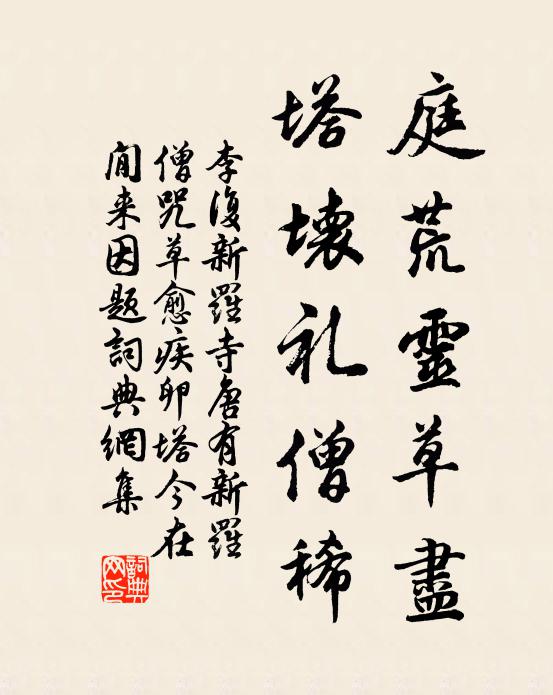 庭荒靈草盡
塔壊礼僧稀
李復新羅寺唐有新羅
僧咒草愈疾卵塔今在
閒来因題詞典網集
詞典
网印